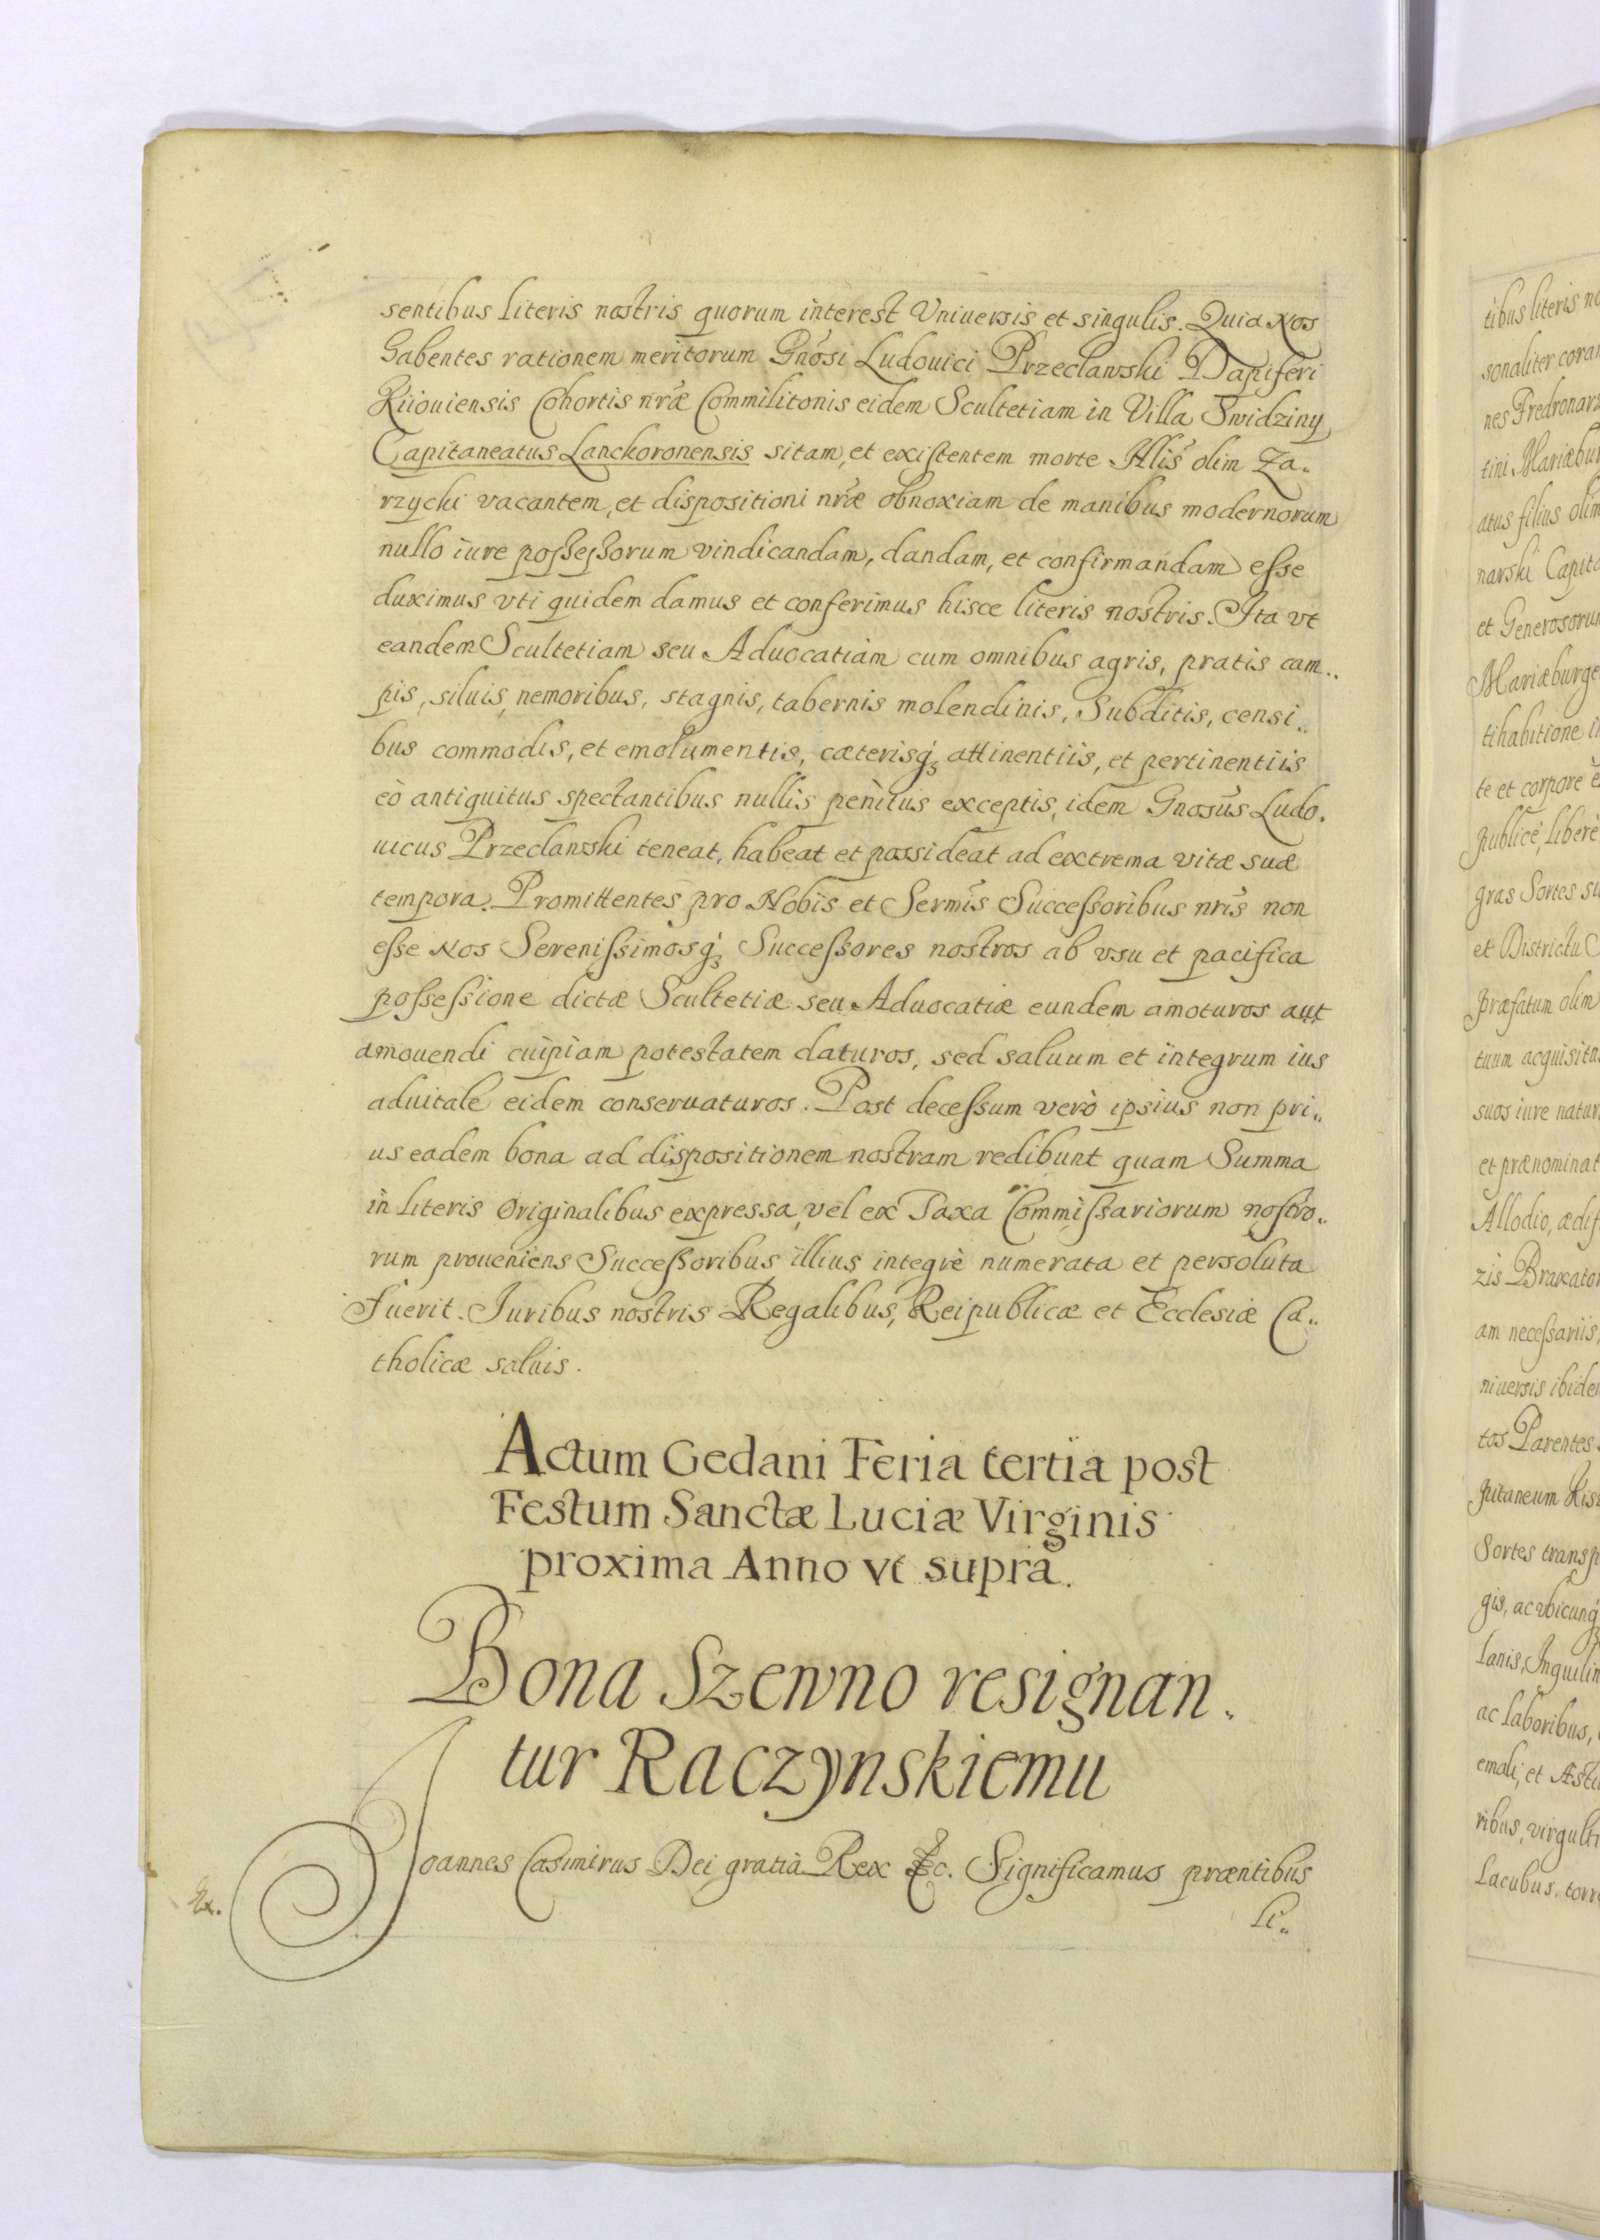 sentibus literis nostris quorum interest Vniuersis et singulis. Quia Nos
Habentes rationem meritorum Gnõsi Ludouici Przeclawski Dapiferi
Kiiouiensis Cohortis nræ Commilitonis eidem Scultetiam in Villa Swidziny
Capitaneatus Lanckoronensis sitam, et existentem morte Illis olim Za..
rzycki vacantem, et dispositioni nræ obnoxiam de manibus modernorum
nullo iure possessorum vindicandam, dandam, et confirmandam esse
duximus vti quidem damus et conferimus hisce literis nostris. Ita vt
eandem Scultetiam seu Aduocatiam cum omnibus agris, pratis cam..
pis, siluis, nemoribus, stagnis, tabernis molendinis, Subditis, censi..
bus commodis, et emolumentis, cæterisq; attinentiis, et pertinentiis
eò antiquitus spectantibus nullis penitus exceptis, idem Gnosus Ludo.
uicus Przeclawski teneat, habeat et possideat ad extrema vitæ suæ
tempora. Promittentes pro Nobis et Sermis Successoribus nris non
esse Nos Serenissimosq; Successores nostros ab vsu et pacifica
possessione dictæ Scultetiæ seu Aduocatiæ eundem amoturos aut
amouendi cuipiam potestatem daturos, sed saluum et integrum ius
aduitale eidem conseruaturos. Post decessum verò ipsius non pri..
us eadem bona ad dispositionem nostram redibunt quam Summa
in literis Originalibus expressa, vel ex Taxa Commissariorum nostro..
rum proueniens Successoribus illius integrè numerata et persoluta
Fuerit. Iuribus nostris Regalibus, Reipublicæ et Ecclesiæ Ca..
tholicæ saluis.
Actum Gedani Feria tertia post
Festum Sanctæ Luciæ Virginis
proxima Anno vt supra.
Bona Szewno resignan.
tur Raczynskiemu
Joannes Casimirus Dei gratia Rex &c. Significamus præntibus
li..
tibus literis no
sonaliter coram
tini Mariæbur
atus filius olim
narski Capita
et Generosorum
Mariæburge
tihabitione in
te et corpore
publicè, liberè
gras Sortes su
et Districtu C
præfatum olim
tuum acquisita
suos iure natur
et prænominat
Allodio, ædif
zis Braxator
am necessariis,
niuersis ibidem
tos Parentes
pitaneum
Sortes transp
gis, ac vbicunq
lanis, Inquilin
ac laboribus,
emali, et Æsti
ribus, virgulti
Lacubus, torr